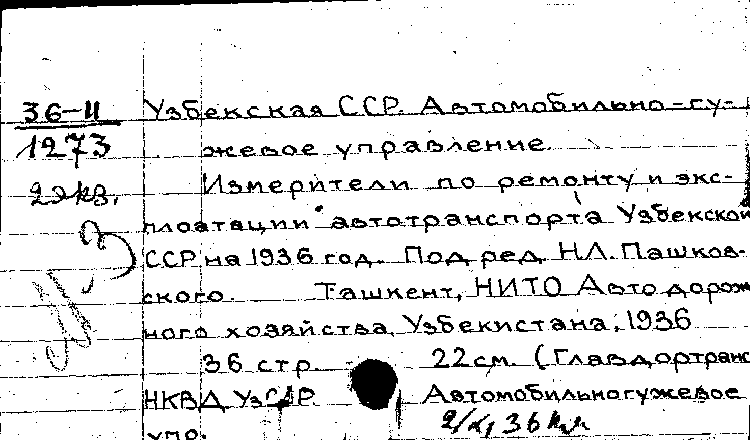 36-11
1273
2экз.
Узбекская ССР. Автомобильно-гу-
жевое управление.
Измерители по ремонту и экс-
плоатации автотранспорта Узбекской
ССР на 1936 год. Под ред. Н.Л. Пашков-
ского. Ташкент, НИТО Автодорож
ного хозяйства Узбекистана, 1936
36 стр. 22 см. (Главдортранс
НКВД УзССР. Автомобильногужевое
упр.